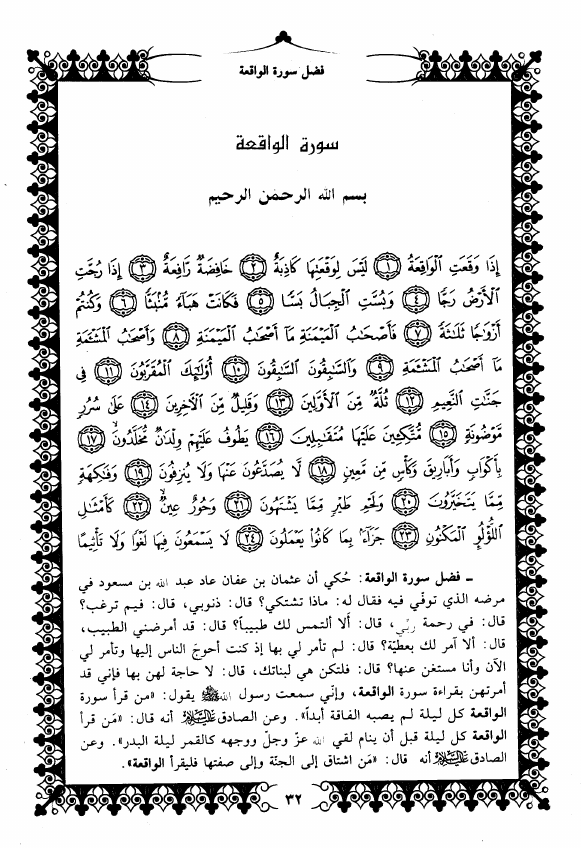 فضل سورة الواقعة
سورة الواقعة
بسم الله الرحمن الرحيم
إِذَا وَقَعَتِ ٱلْوَاقِعَةُ ﴿١﴾ لَيْسَ لِوَقْعَتِهَا كَاذِبَةٌ ﴿٢﴾ خَافِضَةٌ رَّافِعَةٌ ﴿٣﴾ إِذَا رُجَّتِ
ٱلْأَرْضُ رَجًّا ﴿٤﴾ وَبُسَّتِ ٱلْجِبَالُ بَسًّا ﴿٥﴾ فَكَانَتْ هَبَآءً مُّنۢبَثًّا ﴿٦﴾ وَكُنتُمْ
أَزْوَٰجًا ثَلَٰثَةً ﴿٧﴾ فَأَصْحَٰبُ ٱلْمَيْمَنَةِ مَآ أَصْحَٰبُ ٱلْمَيْمَنَةِ ﴿٨﴾ وَأَصْحَٰبُ ٱلْمَشْـَٔمَةِ
مَآ أَصْحَٰبُ ٱلْمَشْـَٔمَةِ ﴿٩﴾ وَٱلسَّٰبِقُونَ ٱلسَّٰبِقُونَ ﴿١٠﴾ أُو۟لَٰٓئِكَ ٱلْمُقَرَّبُونَ ﴿١١﴾ فِى
جَنَّٰتِ ٱلنَّعِيمِ ﴿١٢﴾ ثُلَّةٌ مِّنَ ٱلْأَوَّلِينَ ﴿١٣﴾ وَقَلِيلٌ مِّنَ ٱلْـَٔاخِرِينَ ﴿١٤﴾ عَلَىٰ سُرُرٍ
مَّوْضُونَةٍ ﴿١٥﴾ مُّتَّكِـِٔينَ عَلَيْهَا مُتَقَٰبِلِينَ ﴿١٦﴾ يَطُوفُ عَلَيْهِمْ وِلْدَٰنٌ مُّخَلَّدُونَ ﴿١٧﴾
بِأَكْوَابٍ وَأَبَارِيقَ وَكَأْسٍ مِّن مَّعِينٍ ﴿١٨﴾ لَّا يُصَدَّعُونَ عَنْهَا وَلَا يُنزِفُونَ ﴿١٩﴾ وَفَٰكِهَةٍ
مِّمَّا يَتَخَيَّرُونَ ﴿٢٠﴾ وَلَحْمِ طَيْرٍ مِّمَّا يَشْتَهُونَ ﴿٢١﴾ وَحُورٌ عِينٌ ﴿٢٢﴾ كَأَمْثَٰلِ
ٱللُّؤْلُؤِ ٱلْمَكْنُونِ ﴿٢٣﴾ جَزَآءًۢ بِمَا كَانُوا۟ يَعْمَلُونَ ﴿٢٤﴾ لَا يَسْمَعُونَ فِيهَا لَغْوًا وَلَا تَأْثِيمًا
ـ فضل سورة الواقعة: حُكي أن عثمان بن عفان عاد عبد الله بن مسعود في
مرضه الذي توفّي فيه فقال له: ماذا تشتكي؟ قال: ذنوبي، قال: فيم ترغب؟
قال: في رحمة ربّي، قال: ألا ألتمس لك طبيباً؟ قال: قد أمرضني الطبيب،
قال: ألا آمر لك بعطيّة؟ قال: لم تأمر لي بها إذ كنت أحوجَ الناس إليها وتأمر لي
الآن وأنا مستغن عنها؟ قال: فلتكن هي لبناتك، قال: لا حاجة لهن بها فإني قد
أمرتهن بقراءة سورة الواقعة، وإنّي سمعت رسول الله ﷺ يقول: «من قرأ سورة
الواقعة كل ليلة لم يصبه الفاقة أبداً». وعن الصادق عليه السلام أنه قال: «مَن قرأ
الواقعة كل ليلة قبل أن ينام لقي الله عزّ وجلّ ووجهه كالقمر ليلة البدر». وعن
الصادق عليه السلام أنه قال: «مَن اشتاق إلى الجنّة وإلى صفتها فليقرأ الواقعة».
٣٢